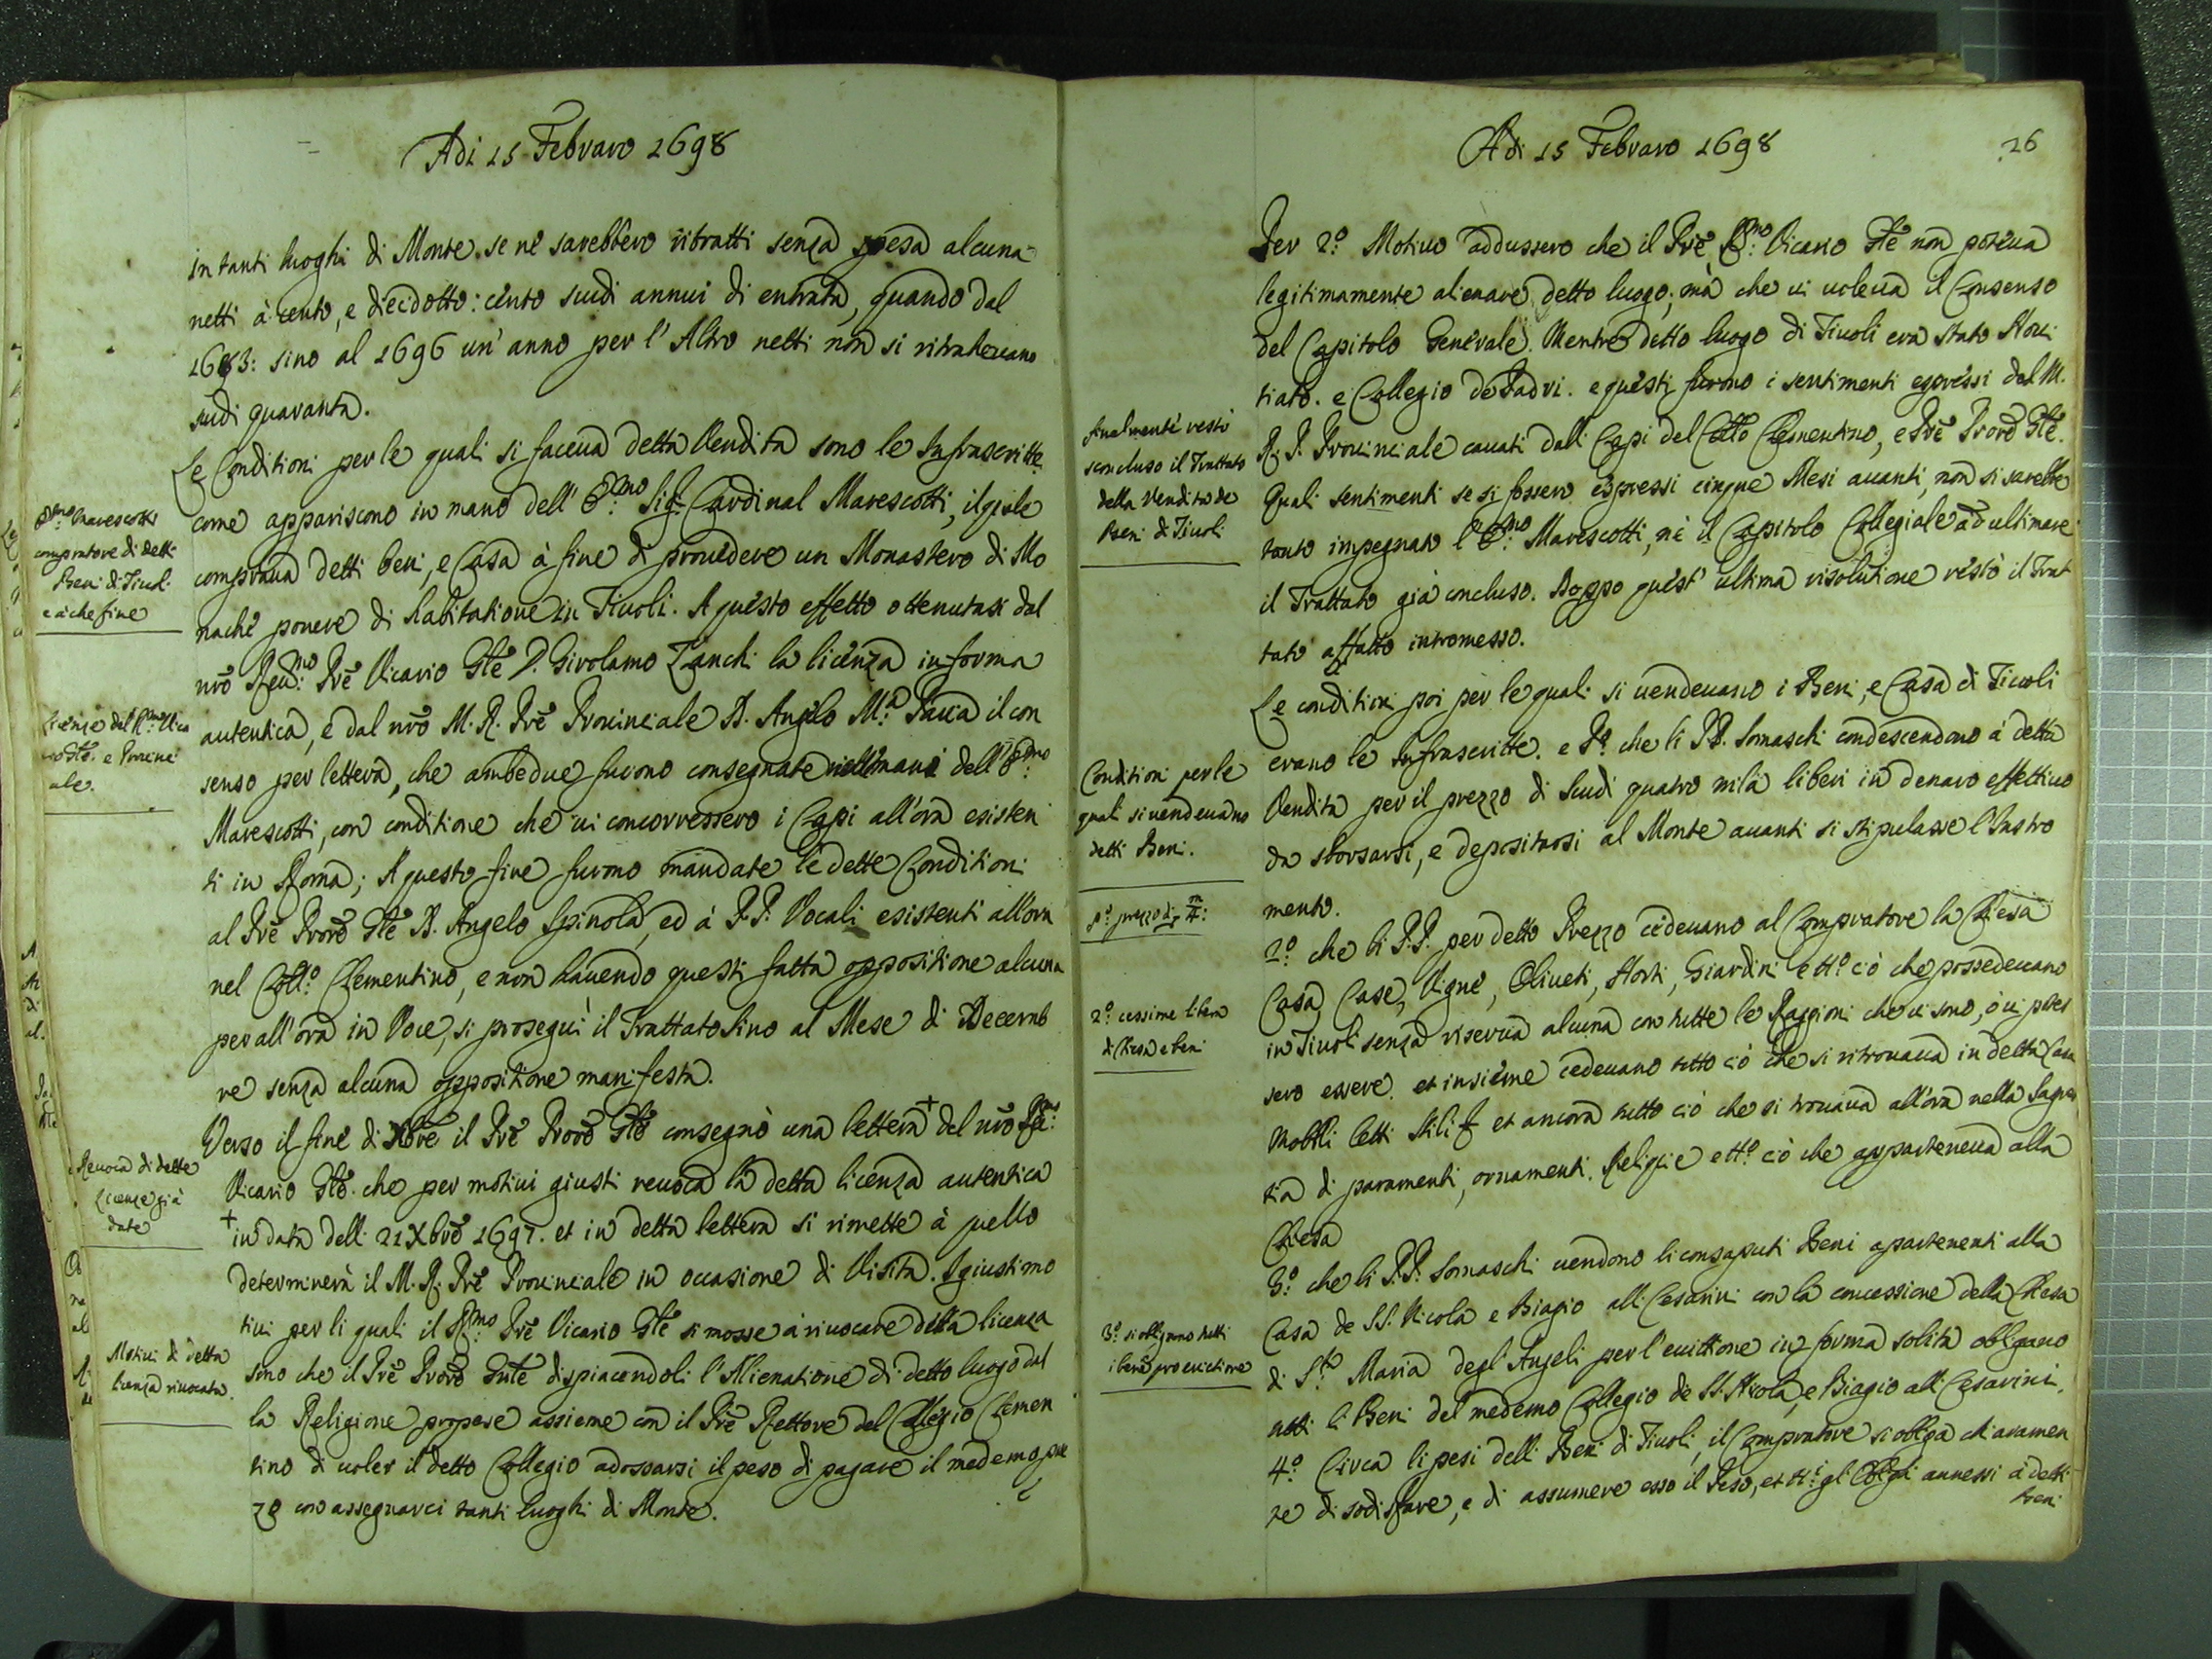 Adi 15 Febraro 1698
in tanti luoghi di Monte se ne sarebbero ritratti senza spesa alcuna
netti à cento, e diecidotto: cento scudi annui di entrata, quando dal
1693: sino al 1696 un' anno per l' Altro netti non si ritrahevano
scudi quaranta.
Le Conditioni per le quali si faceua detta Vendita sono le Infrascritte
come appariscono in mano dell' Em.mo Sig.r Cardinal Marescotti, il quale
compraua detti beni, e Casa à fine di prouedere un Monastero di Mo
nache pouere di habitatione in Tiuoli. A questo effetto ottenutasi dal
nrõ Reu.mo Prẽ Vicario Gñle D. Girolamo Zanchi la licenza in forma
autentica, e dal nrõ M. R. Prẽ Prouinciale D. Angelo M.a Pacca il con
senso per lettera, che ambedue furono consegnate nelle mani dell' Em.mo
Marescotti, con conditione che ui concorressero i Capi all'ora esisten
ti in Roma; A questo fine furono mandate le dette Conditioni
al Prẽ Proc̃ Gñle D. Angelo Spinola, ed à P.P. Vocali esistenti all'ora
nel Coll.o Clementino, e non hauendo questi fatta oppositione alcuna
per all' ora in Voce, si proseguì il Trattato sino al Mese di Decemb
re senza alcuna oppositione manifesta.
Verso il fine di Xbre il Prẽ Proc̃ Gñle consegnò una lettera + del nrõ R.mo
Vicario Gñle che per motiui giusti reuoca la detta licenza autentica
+ in data delli 21 Xbrẽ 1697. et in detta lettera si rimette à quello
determinerà il M. R. Prẽ Prouinciale in occasione di Visita. I giusti mo
tiui per li quali il R.mo Prẽ Vicario Gñle si mosse à riuocare detta licenza
sono che il Prẽ Proc̃ Gñle dispiacendoli l'Alienatione di detto luogo dal
la Religione propose assieme con il Prẽ Rettore del Collegio Clemen
tino di uoler il detto Collegio adossarsi il peso di pagare il medemo prez
zo con assegnarci tanti luoghi di Monte.
Em.mo Marescotti
compratore di detti
Beni di Tiuoli
e à che fine
Licenze del R.mo Vica
rio Gñle. e Prouinci
ale.
Reuoca di dette
licenze già
date
Motiui di detta
licenza riuocata.
Adi 15 Febraro 1698
26
Per 2.o Motiuo addussero che il Prẽ R.mo Vicario Gñle non poteua
legitimamente alienare detto luogo; mà che ui uoleua il Consenso
del Capitolo Generale. Mentre detto luogo di Tiuoli era stato Noui
tiato. e Collegio de Padri. e questi furono i sentimenti espressi dal M.
R. P. Prouinciale cauati dalli Capi del Coll.o Clementino, e Prẽ Proc̃ Gñle.
Quali sentimenti se si fossero espressi cinque Mesi auanti, non si sarebbe
tanto impegnato l' Em.mo Marescotti, nè il Capitolo Collegiale ad ultimare
il Trattato già concluso. Doppo quest' ultima risolutione restò il Trat
tato affatto intromesso.
Le conditioni poi per le quali si uendeuano i Beni, e Casa di Tiuoli
erano le Infrascritte. e P.o che li P.P. Somaschi condescendono à detta
Vendita per il prezzo di Scudi quatro mila liberi in denaro effettiuo
da sborsarsi, e depositarsi al Monte auanti si stipulasse l' Instro
mento.
2.o che li P.P. per detto Prezzo cedeuano al Compratore la Chiesa
Casa, Case, Vigne, Oliueti, Horti, Giardini e tt.o ciò che possedeuano
in Tiuoli senza riserua alcuna con tutte le Raggioni che ui sono, ò ui potes
sero essere. et insieme cedeuano tutto ciò che si ritrouaua in detta Casa
Mobili letti Stili et ancora tutto ciò che si trouaua all'ora nella Sagres
tia di paramenti, ornamenti. Reliquie e tt.o ciò che apparteneua alla
Chiesa
3.o che li P.P. Somaschi uendono li consaputi Beni apartenenti alla
Casa de SS. Nicola e Biagio alli Cesarini con la concessione della Chiesa
di S.ta Maria degl'Angeli per l'euittione in forma solita obligano
tutti li Beni del medemo Collegio de SS. Nicola, e Biagio alli Cesarini.
4.o Circa li pesi delli Beni di Tiuoli, il Compratore si obliga chiaramen
te di sodisfare, e di assumere esso il Peso, et tt.i gli Oblighi annessi à detti
Beni
finalmente restò
sconcluso il Trattato
della Vendita de
Beni di Tiuoli
Conditioni per le
quali si uendeuano
detti Beni.
P.o prezzo di 4 m:
2.o cessione libera
di Chiesa e beni
3.o si obligano tutti
i beni pro euictione